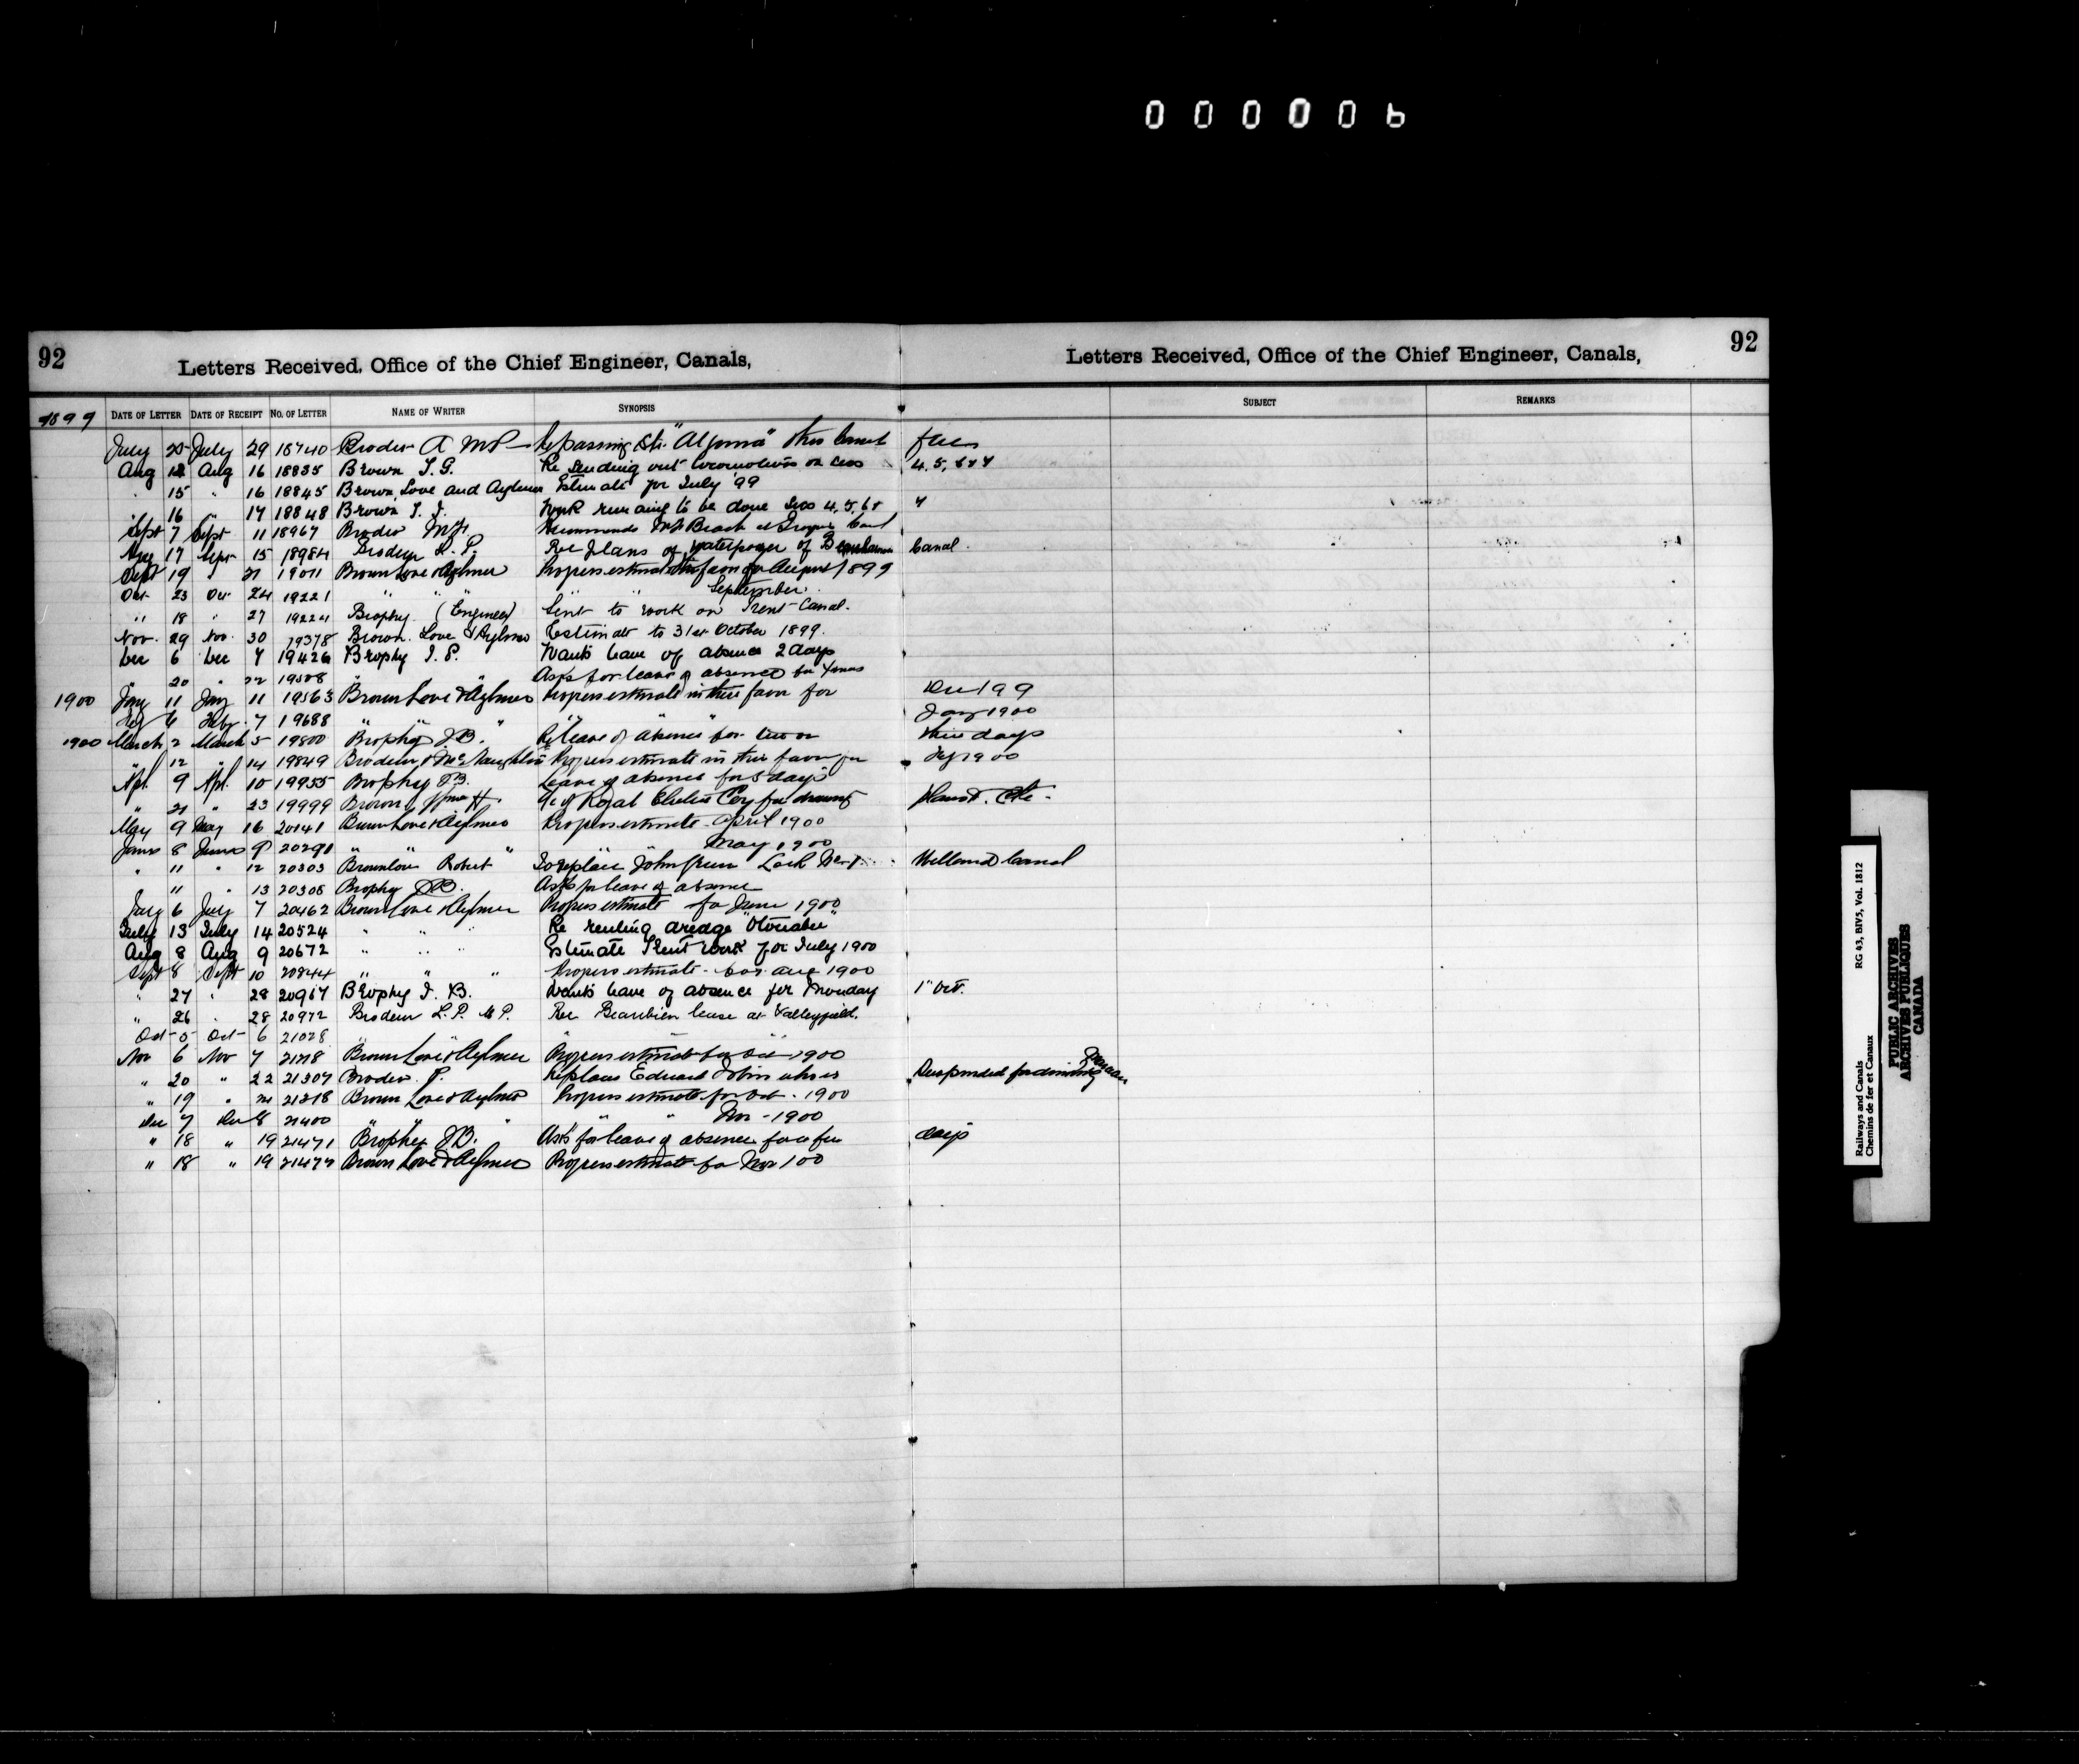 000006
92
Letters Received, Office of the Chief Engineer, Canals,
Letters Received, Office of the Chief Engineer, Canals,
92
1899 DATE OF LETTER DATE OF RECEIPT NO. OF LETTER NAME OF WRITER SYNOPSIS SUBJECT REMARKS
July 25 July 29 18740 Broder A MP Re passing Str. "Algoma" thro Canal free
Aug 12 Aug 16 18835 Brown T. G. Re sending out locomotives on secs 4. 5, 6 & 7
" 15 " 16 18845 Brown, Love and Aylmer Estimate for July '99
" 16 " 17 18848 Brown T. G. Work remaining to be done Secs 4, 5, 6 & 7
Sept 7 Sept 11 18967 Broder M.P. Recommends Beach at Canal
Aug 17 Sept 15 18984 Brodeur L. P. Re Plans of waterpower of Beauharnois Canal
Sept 19 " 21 19011 Brown Love & Aylmer Progress estimate favor for August 1899
Oct 23 Oct 24 19221 " " " " September
" 18 " 27 19224 Brophy (Engineer) Sent to work on Trent Canal.
Nov. 29 Nov. 30 19378 Brown. Love & Aylmer Estimate to 31st October 1899.
Dec 6 Dec 7 19426 Brophy Wants leave of absence 2 days
" 20 " 22 19508 " " Asks for leave of absence for Xmas
1900 Jany 11 Jany 11 19563 Brown Love & Aylmer Progress estimate in their favor for Dec 199
Feby 6 Feby 7 19688 " " " " " " Jany 1900
1900 March 2 March 5 19800 Brophy J.B. Re leave of absence for two or three days
" 12 " 14 19849 Brodeur & McNaughton Progress estimate in their favor for Feby 1900
Apl. 9 Apl. 10 19955 Brophy J.B. Leave of absence for 5 days
" 21 " 23 19999 Brown H. a/c of Royal Electric Coy for drawing plans. Etc.
May 9 May 16 20141 Brown Love & Aylmer Progress estimate April 1900
June 8 June 9 20290 " " " May 1900
" 11 " 12 20303 Brownlow Robert To replace John Green Lock Welland Canal
" 11 " 13 20306 Brophy J.B. Asks for leave of absence
July 6 July 7 20462 Brown Love & Aylmer Progress estimate for June 1900
July 13 July 14 20524 " " " Re renting dredge "Otonabee"
Aug 8 Aug 9 20672 " " " Estimate Trent work for July 1900
Sept 8 Sept 10 20844 " " " Progress estimate for Aug 1900
" 27 " 28 20967 Brophy J. B. Wants leave of absence for Monday 1st Oct.
" 26 " 28 20972 Brodeur L. P. M P. Re Beaubien lease at Valleyfield.
Oct 5 Oct 6 21028 " "
Nov 6 Nov 7 21218 Brown Love & Aylmer Progress estimate for Oct 1900
" 20 " 22 21307 Broder P. Replaces Edward Tobin who is Suspended for
" 19 " 21 21318 Brown Love & Aylmer Progress estimate for Oct. 1900
Dec 7 Dec 8 21400 " " " " " Nov - 1900
" 18 " 19 21471 Brophy J.B. Asks for leave of absence for a few days
" 18 " 19 21477 Brown Love & Aylmer Progress estimate for Nov 100
Railways and Canals RG 43, BIV5, Vol. 1812
Chemins de fer et Canaux
PUBLIC ARCHIVES
ARCHIVES PUBLIQUES
CANADA